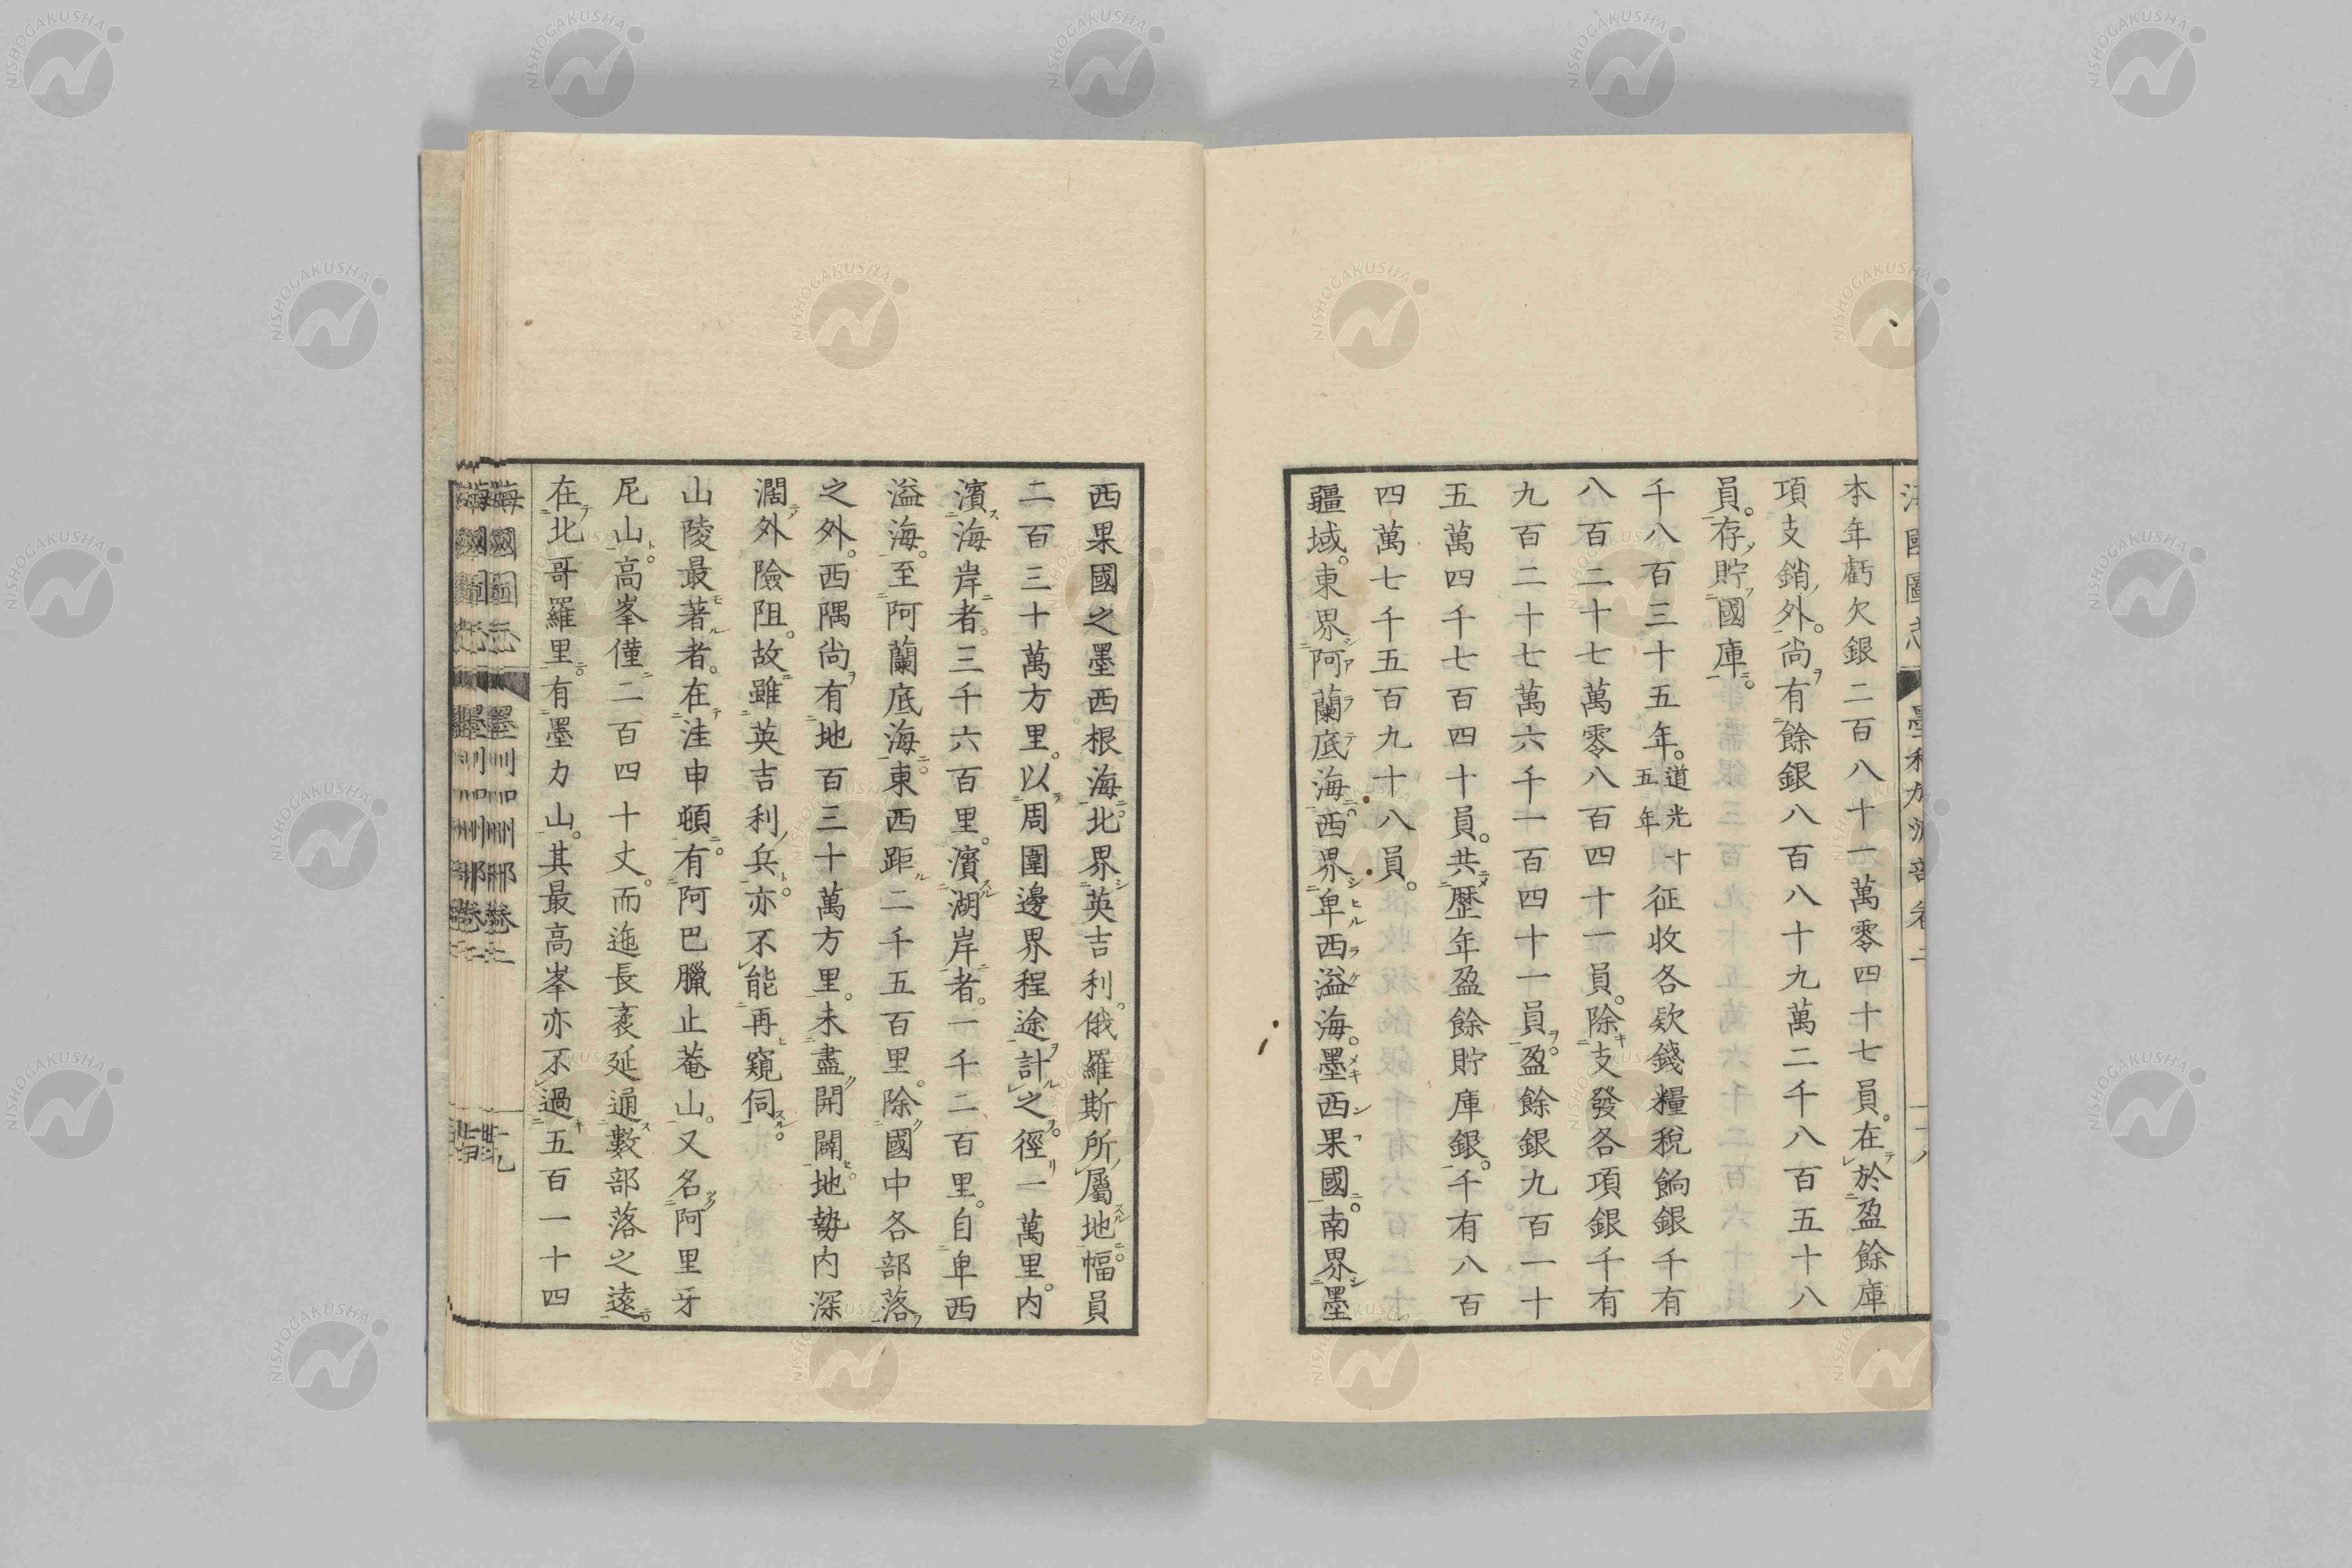 本年虧欠銀二百八十一萬零四十七員。在於盈餘庫
項支銷外。尚有餘銀八百八十九萬二千八百五十八
員。存貯國庫。
千八百三十五年。道光十五年征收各欵錢糧稅餉銀千有
八百二十七萬零八百四十一員。除支發各項銀千有
九百二十七萬六千一百四十一員。盈餘銀九百一十
五萬四千七百四十員。共歷年盈餘貯庫銀。千有八百
四萬七千五百九十八員。
疆域。東界阿蘭底海。西界卑西溢海。墨西果國。南界墨
西果國之墨西根海。北界英吉利。俄羅斯所屬地。幅員
二百三十萬方里。以周圍邊界程途計之。徑一萬里。内
濱海岸者。三千六百里。濱湖岸者。一千二百里。自卑西
溢海。至阿蘭底海。東西距二千五百里。除國中各部落
之外。西隅尚有地百三十萬方里。未盡開闢。地勢内深
濶外險阻。故雖英吉利兵。亦不能再窺伺。
山陵最著者。在洼申頓。有阿巴臘止菴山。又名阿里牙
尼山。高峯僅二百四十丈。而迤長袤延通數部落之遠。
在北哥羅里。有墨力山。其最高峯亦不過五百一十四
NISHOGAKUSHA